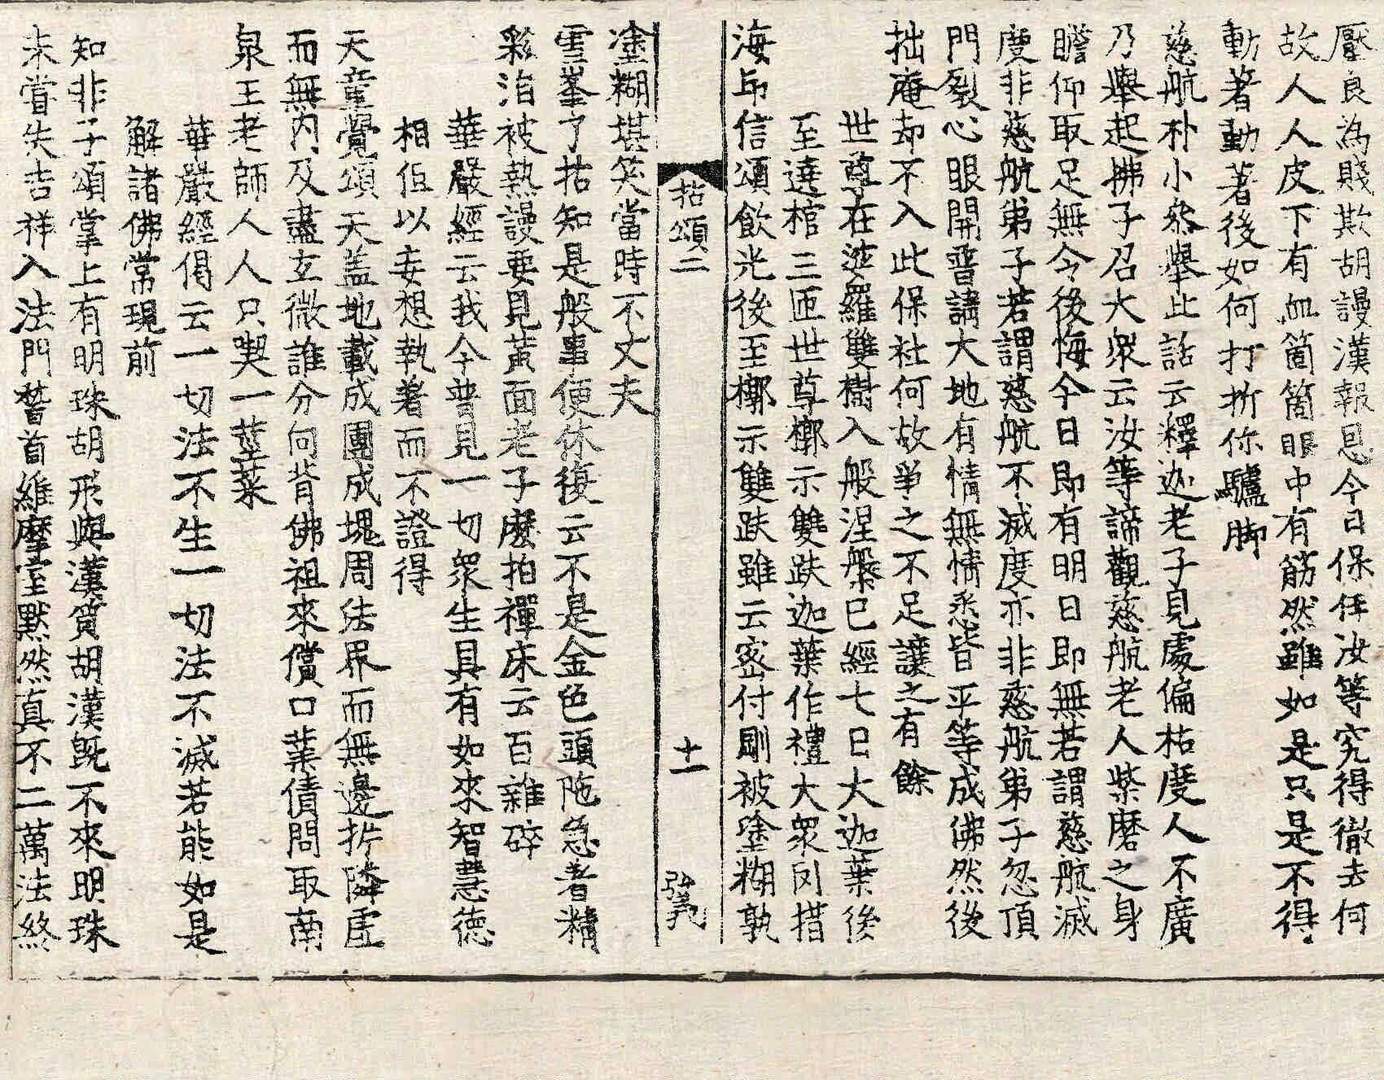 壓良為賤欺胡謾漢報恩今日保任汝等究得徹去何
故人人皮下有血箇箇眼中有筋然雖如是只是不得
動著動著後如何打折你驢脚
慈航朴小叅舉此話云釋迦老子見處偏枯度人不廣
乃舉起拂子召大衆云汝等諦觀慈航老人紫磨之身
瞻仰取足無令後悔今日即有明日即無若謂慈航滅
度非慈航弟子若謂慈航不滅度亦非慈航弟子忽頂
門裂心眼開普請大地有情無情悉皆平等成佛然後
拙庵却不入此保社何故爭之不足讓之有餘
世尊在娑羅雙樹入般涅槃已經七日大迦葉後
至遶棺三匝世尊槨示雙趺迦葉作禮大衆罔措
海印信頌飲光後至槨示雙趺雖云密付剛被塗糊孰
拈頌二
十一
塗糊堪笑當時不丈夫
雪峯了拈知是般事便休復云不是金色頭陁急著精
彩洎被熱謾要見黃面老子麽拍禪床云百雜碎
華嚴經云我今普見一切衆生具有如來智慧德
相但以妄想執著而不證得
天童覺頌天盖地載成團成塊周法界而無邊折隣虛
而無內及盡玄微誰分向背佛祖來償口業債問取南
泉王老師人人只喫一莖菜
華嚴經偈云一切法不生一切法不滅若能如是
解諸佛常現前
知非子頌掌上有明珠胡形與漢質胡漢旣不來明珠
未甞失吉祥入法門暬首維摩室默然真不二萬法終